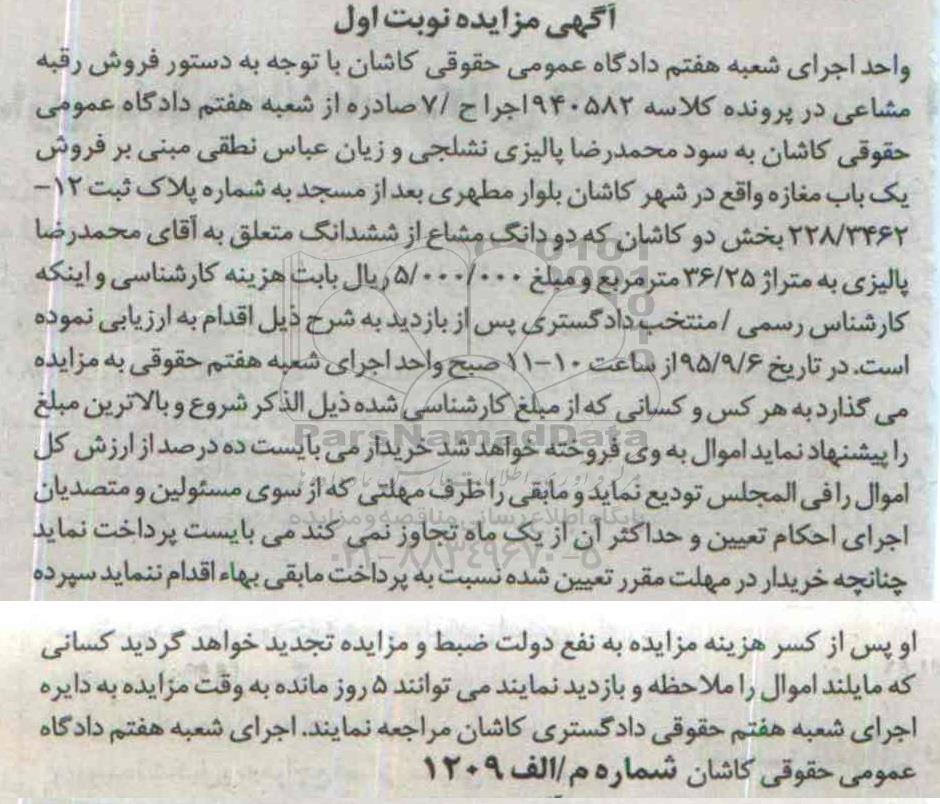 آگهی مزایده نوبت اول
واحد اجرای شعبه هفتم دادگاه عمومی حقوقی کاشان با توجه به دستور فروش رقبه
مشاعی در پرونده کلاسه ۹۴۰۵۸۲اجرا ح /۷ صادره از شعبه هفتم دادگاه عمومی
حقوقی کاشان به سود محمدرضا پالیزی نشلجی و زیان عباس نطقی مبنی بر فروش
یک باب مغازه واقع در شهر کاشان بلوار مطهری بعد از مسجد به شماره پلاک ثبت ۱۲-
۲۲۸/۳۴۶۲ بخش دو کاشان که دو دانگ مشاع از ششدانگ متعلق به آقای محمدرضا
پالیزی به متراژ ۳۶/۲۵ مترمربع و مبلغ ۵/۰۰۰/۰۰۰ ریال بابت هزینه کارشناسی و اینکه
کارشناس رسمی / منتخب دادگستری پس از بازدید به شرح ذیل اقدام به ارزیابی نموده
است. در تاریخ ۹۵/۹/۶از ساعت ۱۰-۱۱ صبح واحد اجرای شعبه هفتم حقوقی به مزایده
می گذارد به هر کس و کسانی که از مبلغ کارشناسی شده ذیل الذکر شروع و بالاترین مبلغ
را پیشنهاد نماید اموال به وی فروخته خواهد شد خریدار می بایست ده درصد از ارزش کل
اموال را فی المجلس تودیع نماید و مابقی را ظرف مهلتی که از سوی مسئولین و متصدیان
اجرای احکام تعیین و حداکثر آن از یک ماه تجاوز نمی کند می بایست پرداخت نماید
چنانچه خریدار در مهلت مقرر تعیین شده نسبت به پرداخت مابقی بهاء اقدام ننماید سپرده
او پس از کسر هزینه مزایده به نفع دولت ضبط و مزایده تجدید خواهد گردید کسانی
که مایلند اموال را ملاحظه و بازدید نمایند می توانند ۵ روز مانده به وقت مزایده به دایره
اجرای شعبه هفتم حقوقی دادگستری کاشان مراجعه نمایند. اجرای شعبه هفتم دادگاه
عمومی حقوقی کاشان شماره م/الف ۱۲۰۹
ParsNamadData
پایگاه اطلاع رسانی مناقصه و مزایده
۰۲۱-۸۸۳۴۹۶۷۰-۵